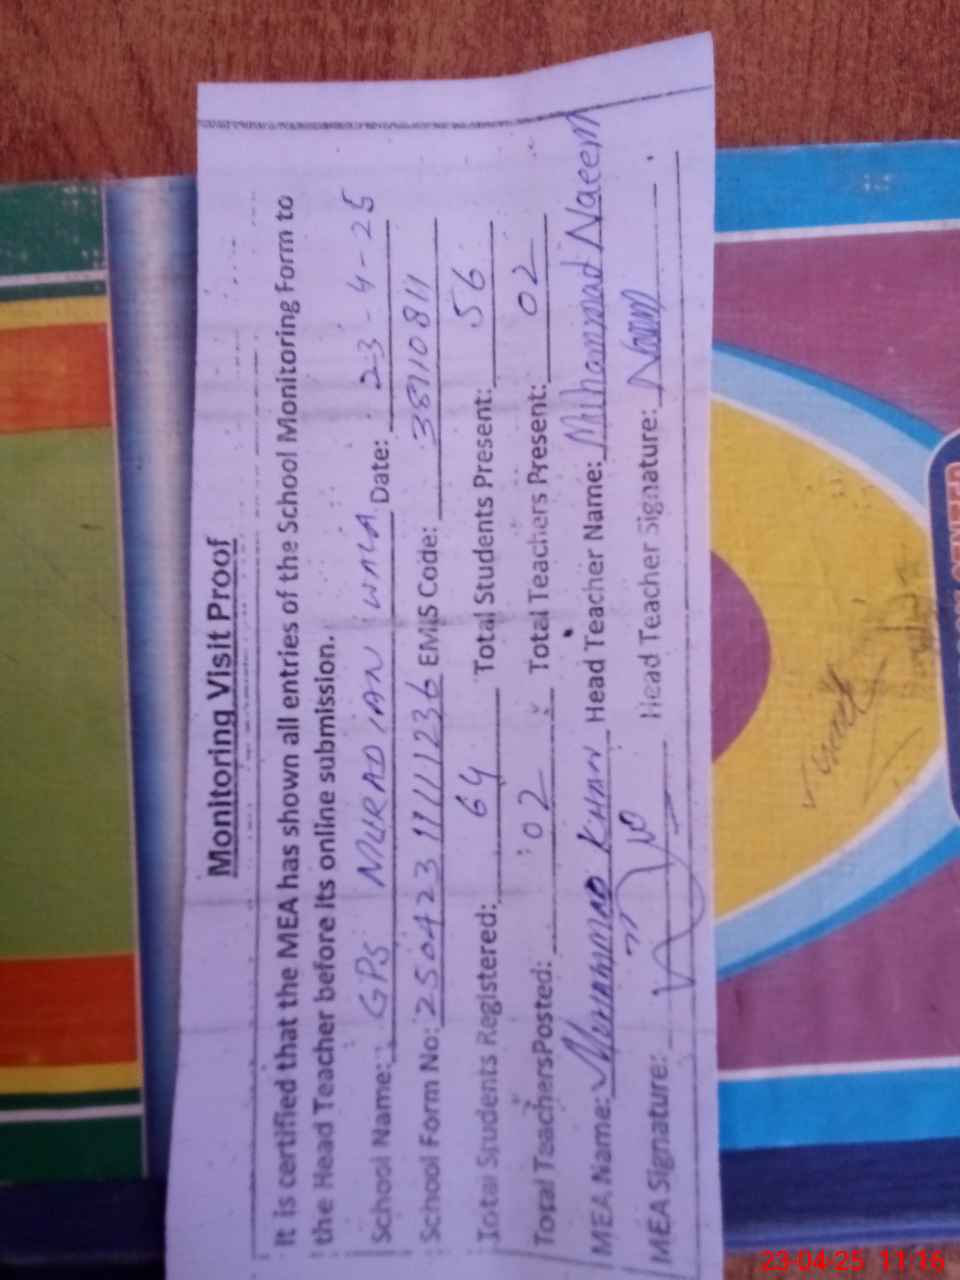 Monitoring Visit Proof
It is certified that the MEA has shown all entries of the School Monitoring Form to
the Head Teacher before its online submission.
School Name: GPS MURADIAN WALA Date: 23-4-25
School Form No: 250423 11111236 EMIS Code: 38110811
Total Students Registered: 64 Total Students Present: 56
Total Teachers Posted: 02 Total Teachers Present: 02
MEA Name: Muhammad KHAN Head Teacher Name: Muhammad Naeem
MEA Signature: Head Teacher Signature: Naeem
23-04-25 11:16